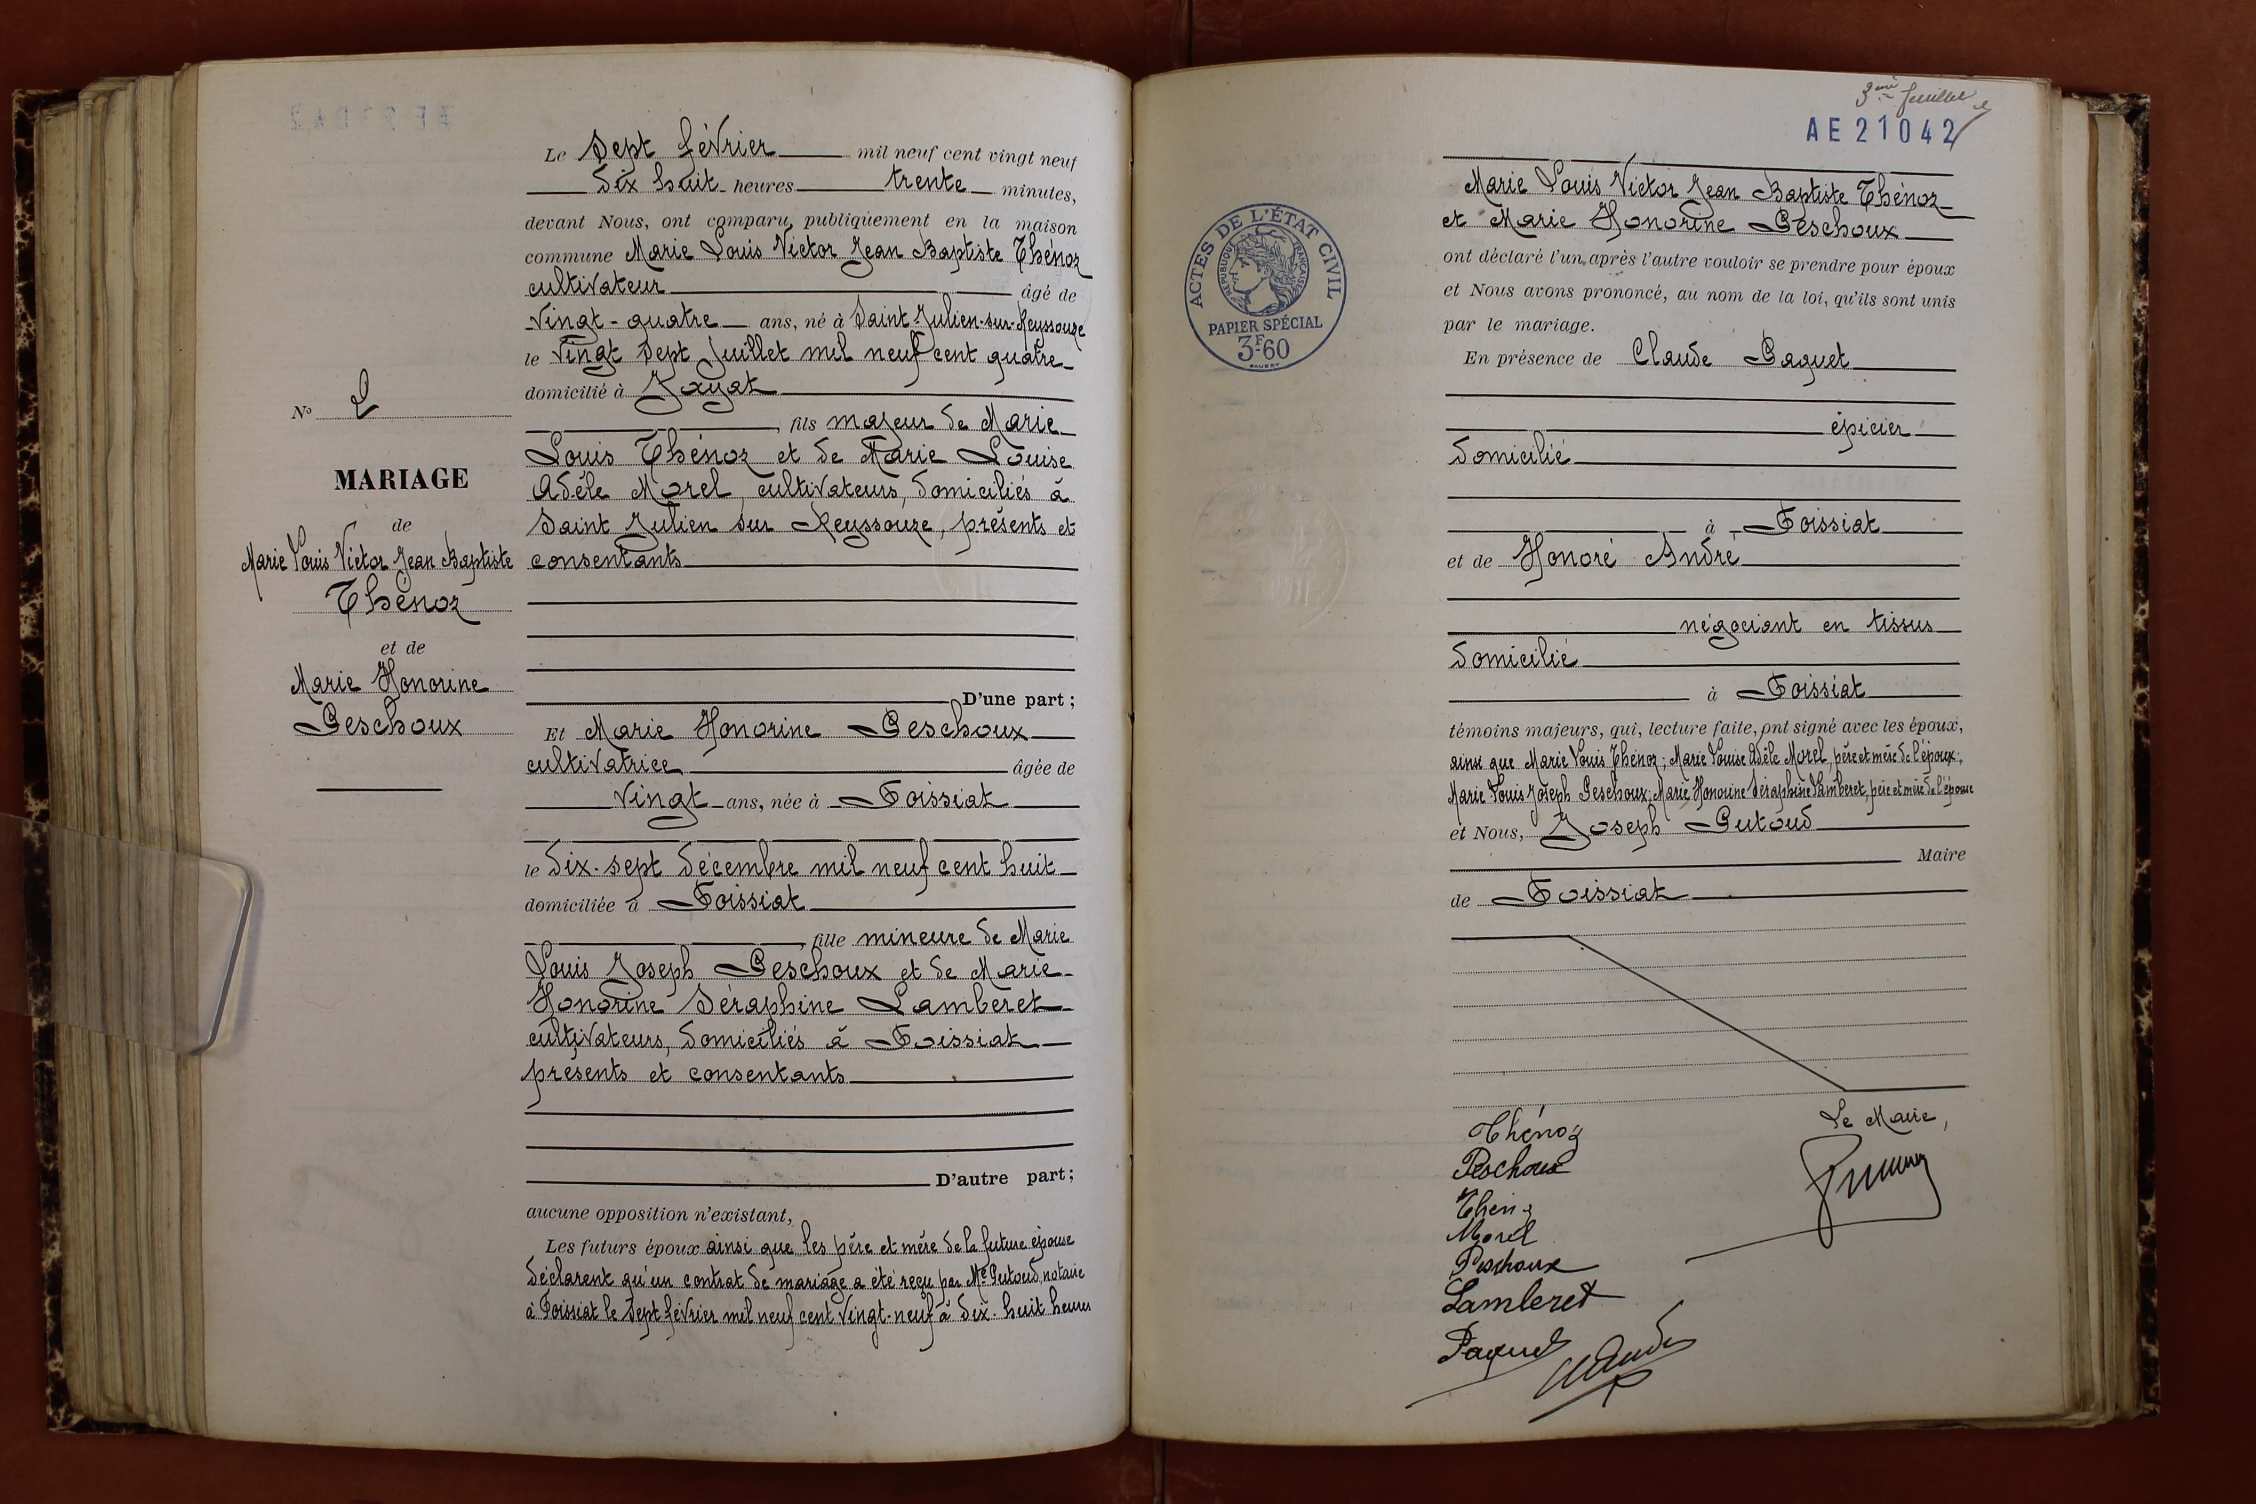 Le Sept février mil neuf cent vingt neuf
dix huit heures trente minutes,
devant Nous, ont comparu publiquement en la maison
commune Marie Louis Victor Jean Baptiste Thénoz
cultivateur âgé de
vingt-quatre ans, né à Saint-Julien-sur-Reyssouze
le vingt sept juillet mil neuf cent quatre
domicilié à Jayat
, fils majeur de Marie
Louis Thénoz et de Marie Louise
Adèle Morel, cultivateurs, domiciliés à
Saint Julien sur Reyssouze, présents et
consentants
D'une part;
Et Marie Honorine Peschoux
cultivatrice âgée de
vingt ans, née à Foissiat
le dix-sept décembre mil neuf cent huit
domiciliée à Foissiat
, fille mineure de Marie
Louis Joseph Peschoux et de Marie
Honorine Séraphine Lamberet
cultivateurs, domiciliés à Foissiat
présents et consentants
D'autre part;
aucune opposition n'existant,
Les futurs époux ainsi que les père et mère de la future épouse
déclarent qu'un contrat de mariage a été reçu par Me Putoud, notaire
à Foissiat le sept février mil neuf cent vingt-neuf à dix-huit heures
No 2
MARIAGE
de
Marie Louis Victor Jean Baptiste
Thénoz
et de
Marie Honorine
Peschoux
3ème feuillet
AE21042
ACTES DE L'ÉTAT CIVIL
RÉPUBLIQUE FRANÇAISE
PAPIER SPÉCIAL
3F60
Marie Louis Victor Jean Baptiste Thénoz
et Marie Honorine Peschoux
ont déclaré l'un après l'autre vouloir se prendre pour époux
et Nous avons prononcé, au nom de la loi, qu'ils sont unis
par le mariage.
En présence de Claude Paquet
épicier
domicilié
à Foissiat
et de Honoré André
négociant en tissus
domicilié
à Foissiat
témoins majeurs, qui, lecture faite, ont signé avec les époux,
ainsi que Marie Louis Thénoz; Marie Louise Adèle Morel, père et mère de l'époux;
Marie Louis Joseph Peschoux, Marie Honorine Séraphine Lamberet, père et mère de l'épouse
et Nous, Joseph Putoud
Maire
de Foissiat
Thénoz
Peschoux
Thénoz
Morel
Peschoux
Lamberet
Paquet
Le Maire,